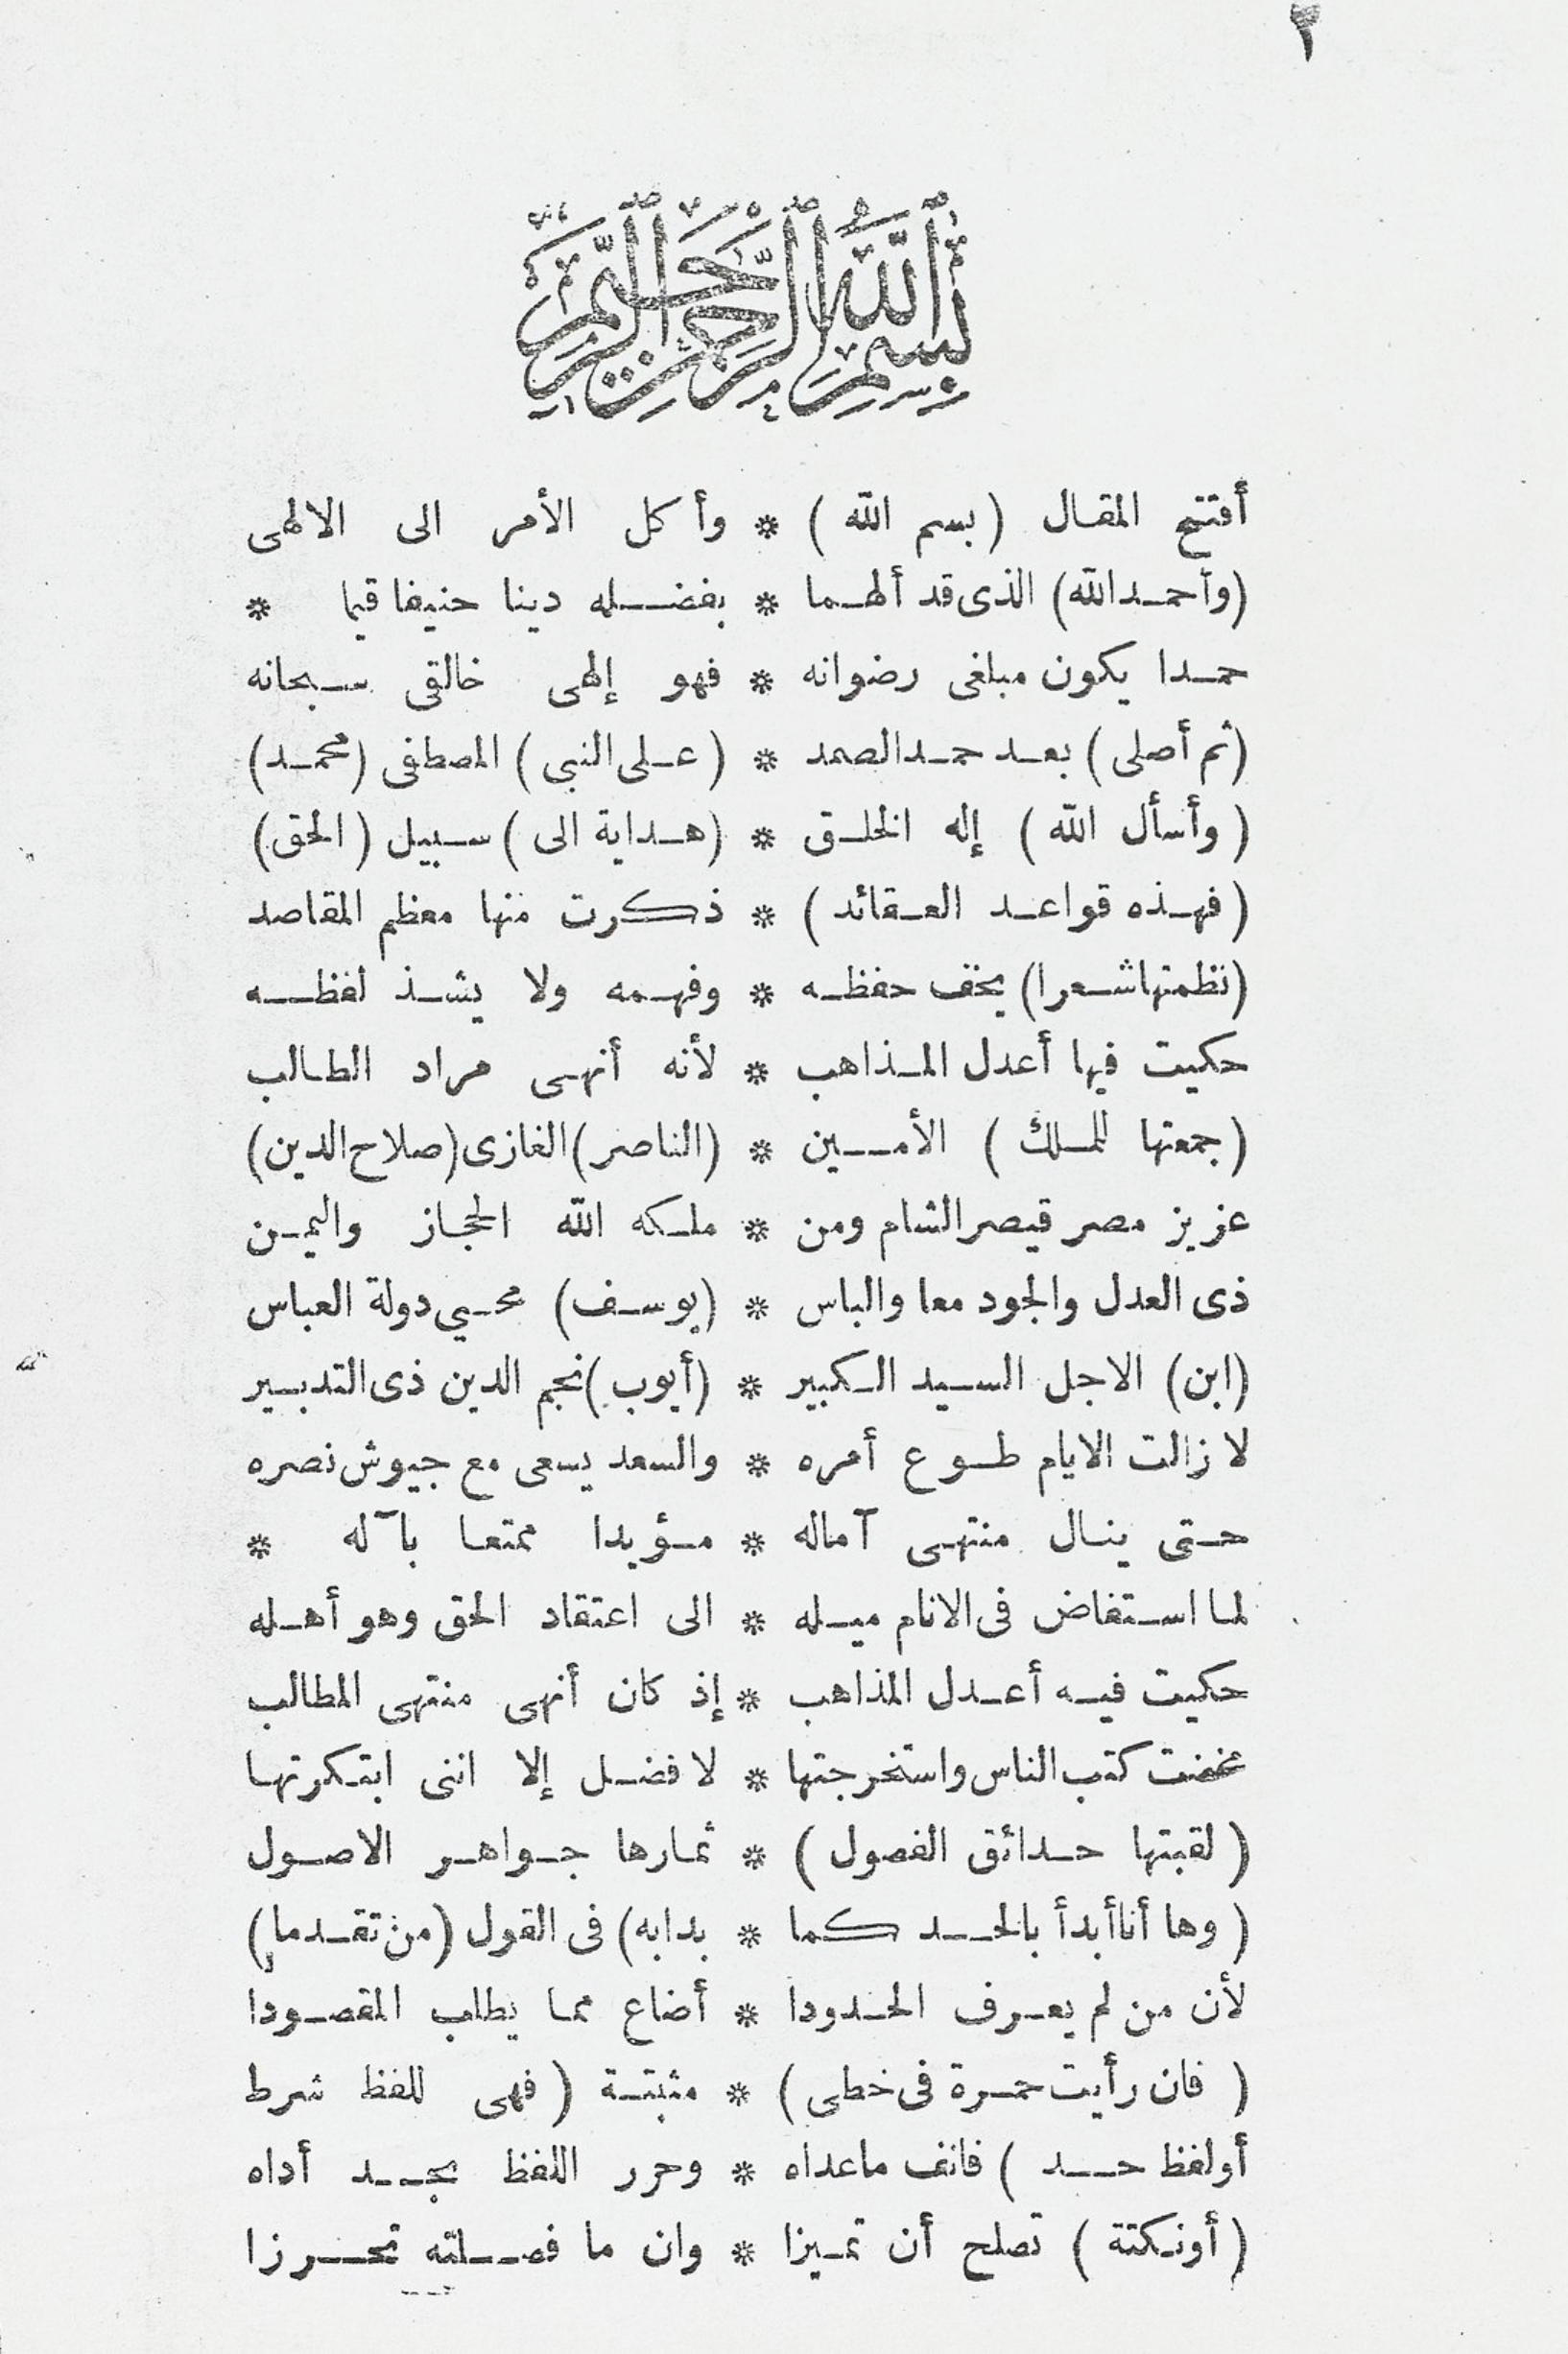 ٢
بِسْمِ ٱللَّهِ ٱلرَّحْمَٰنِ ٱلرَّحِيمِ
أفتتح المقال (بسم الله) * وأكل الأمر الى الالهى
(وأحمد الله) الذى قد ألهما * بفضله دينا حنيفا قيما *
حمدا يكون مبلغى رضوانه * فهو إلهى خالقى سبحانه
(ثم أصلى) بعد حمد الصمد * (على النبى) المصطفى (محمد)
(وأسأل الله) إله الخلق * (هداية الى) سبيل (الحق)
(فهذه قواعد العقائد) * ذكرت منها معظم المقاصد
(نظمتها شعرا) يخف حفظه * وفهمه ولا يشذ لفظه
حكيت فيها أعدل المذاهب * لأنه أنهى مراد الطالب
(جمعتها للملك) الأمين * (الناصر) الغازى (صلاح الدين)
عزيز مصر قيصر الشام ومن * ملكه الله الحجاز واليمن
ذى العدل والجود معا والباس * (يوسف) محيي دولة العباس
(ابن) الاجل السيد الكبير * (أيوب) نجم الدين ذى التدبير
لا زالت الايام طوع أمره * والسعد يسعى مع جيوش نصره
حتى ينال منتهى آماله * مؤيدا ممتعا بآله *
لما استفاض فى الانام ميله * الى اعتقاد الحق وهو أهله
حكيت فيه أعدل المذاهب * إذ كان أنهى منتهى المطالب
مخضت كتب الناس واستخرجتها * لا فضل إلا اننى ابتكرتها
(لقبتها حدائق الفصول) * ثمارها جواهر الاصول
(وها أنا أبدأ بالحد كما * بدا به) فى القول (من تقدما)
لأن من لم يعرف الحدودا * أضاع مما يطلب المقصودا
(فان رأيت حمرة فى خطى) * مثبتة (فهى للفظ شرط
أو لفظ حد) فانف ما عداه * وحرر اللفظ بجد أداه
(أو نكتة) تصلح أن تميزا * وان ما فصلته تحرزا